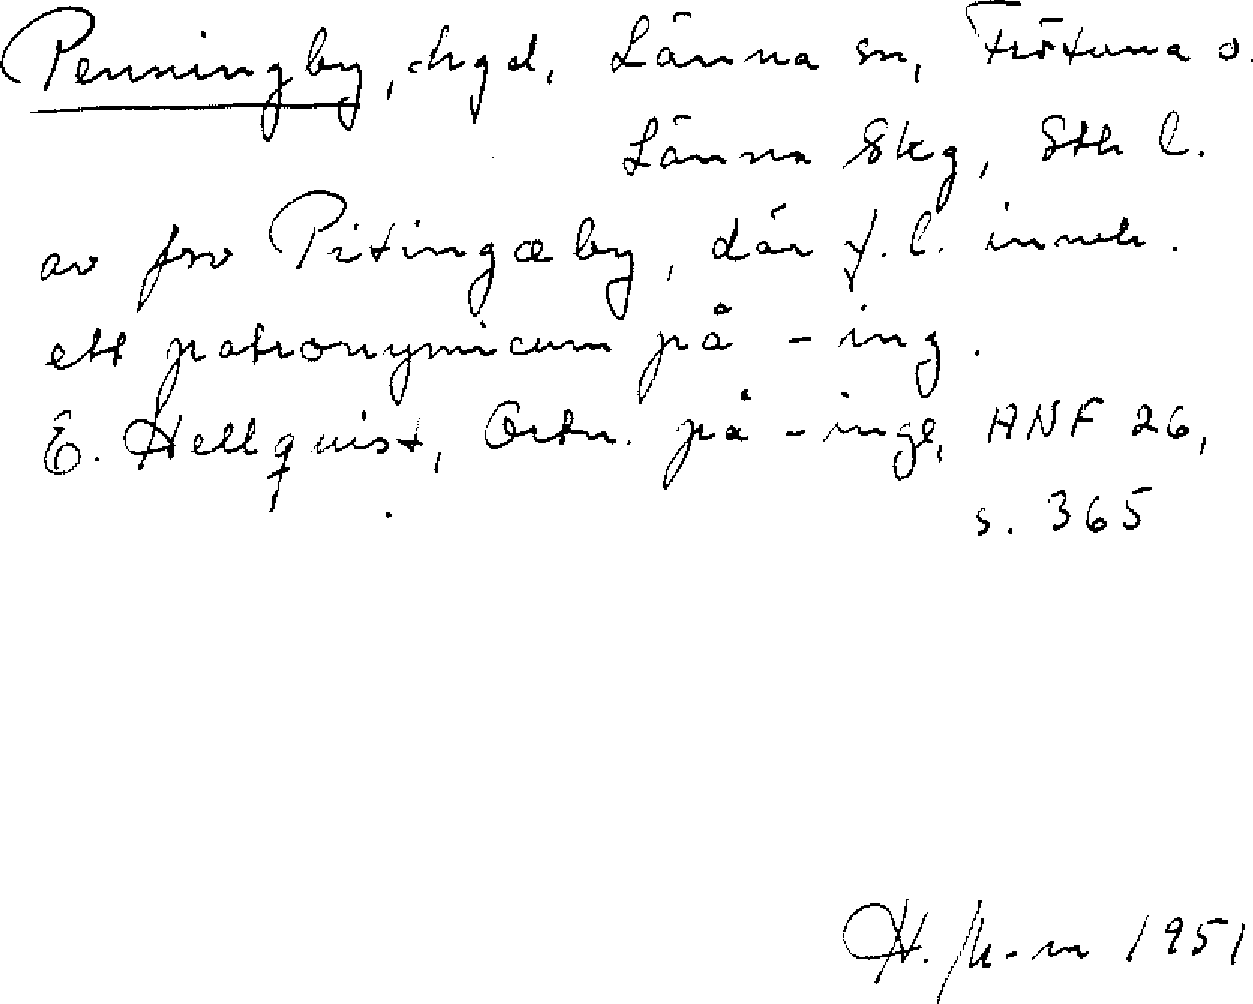 Penningby, hgd, Länna sn, Frötuna o.
Länna Skg, Sth l.
av fsv Pitingæby, där f.l. inneh.
ett patronymicum på -ing.
E. Hellquist, Ortn. på -inge, ANF 26,
s. 365
1951